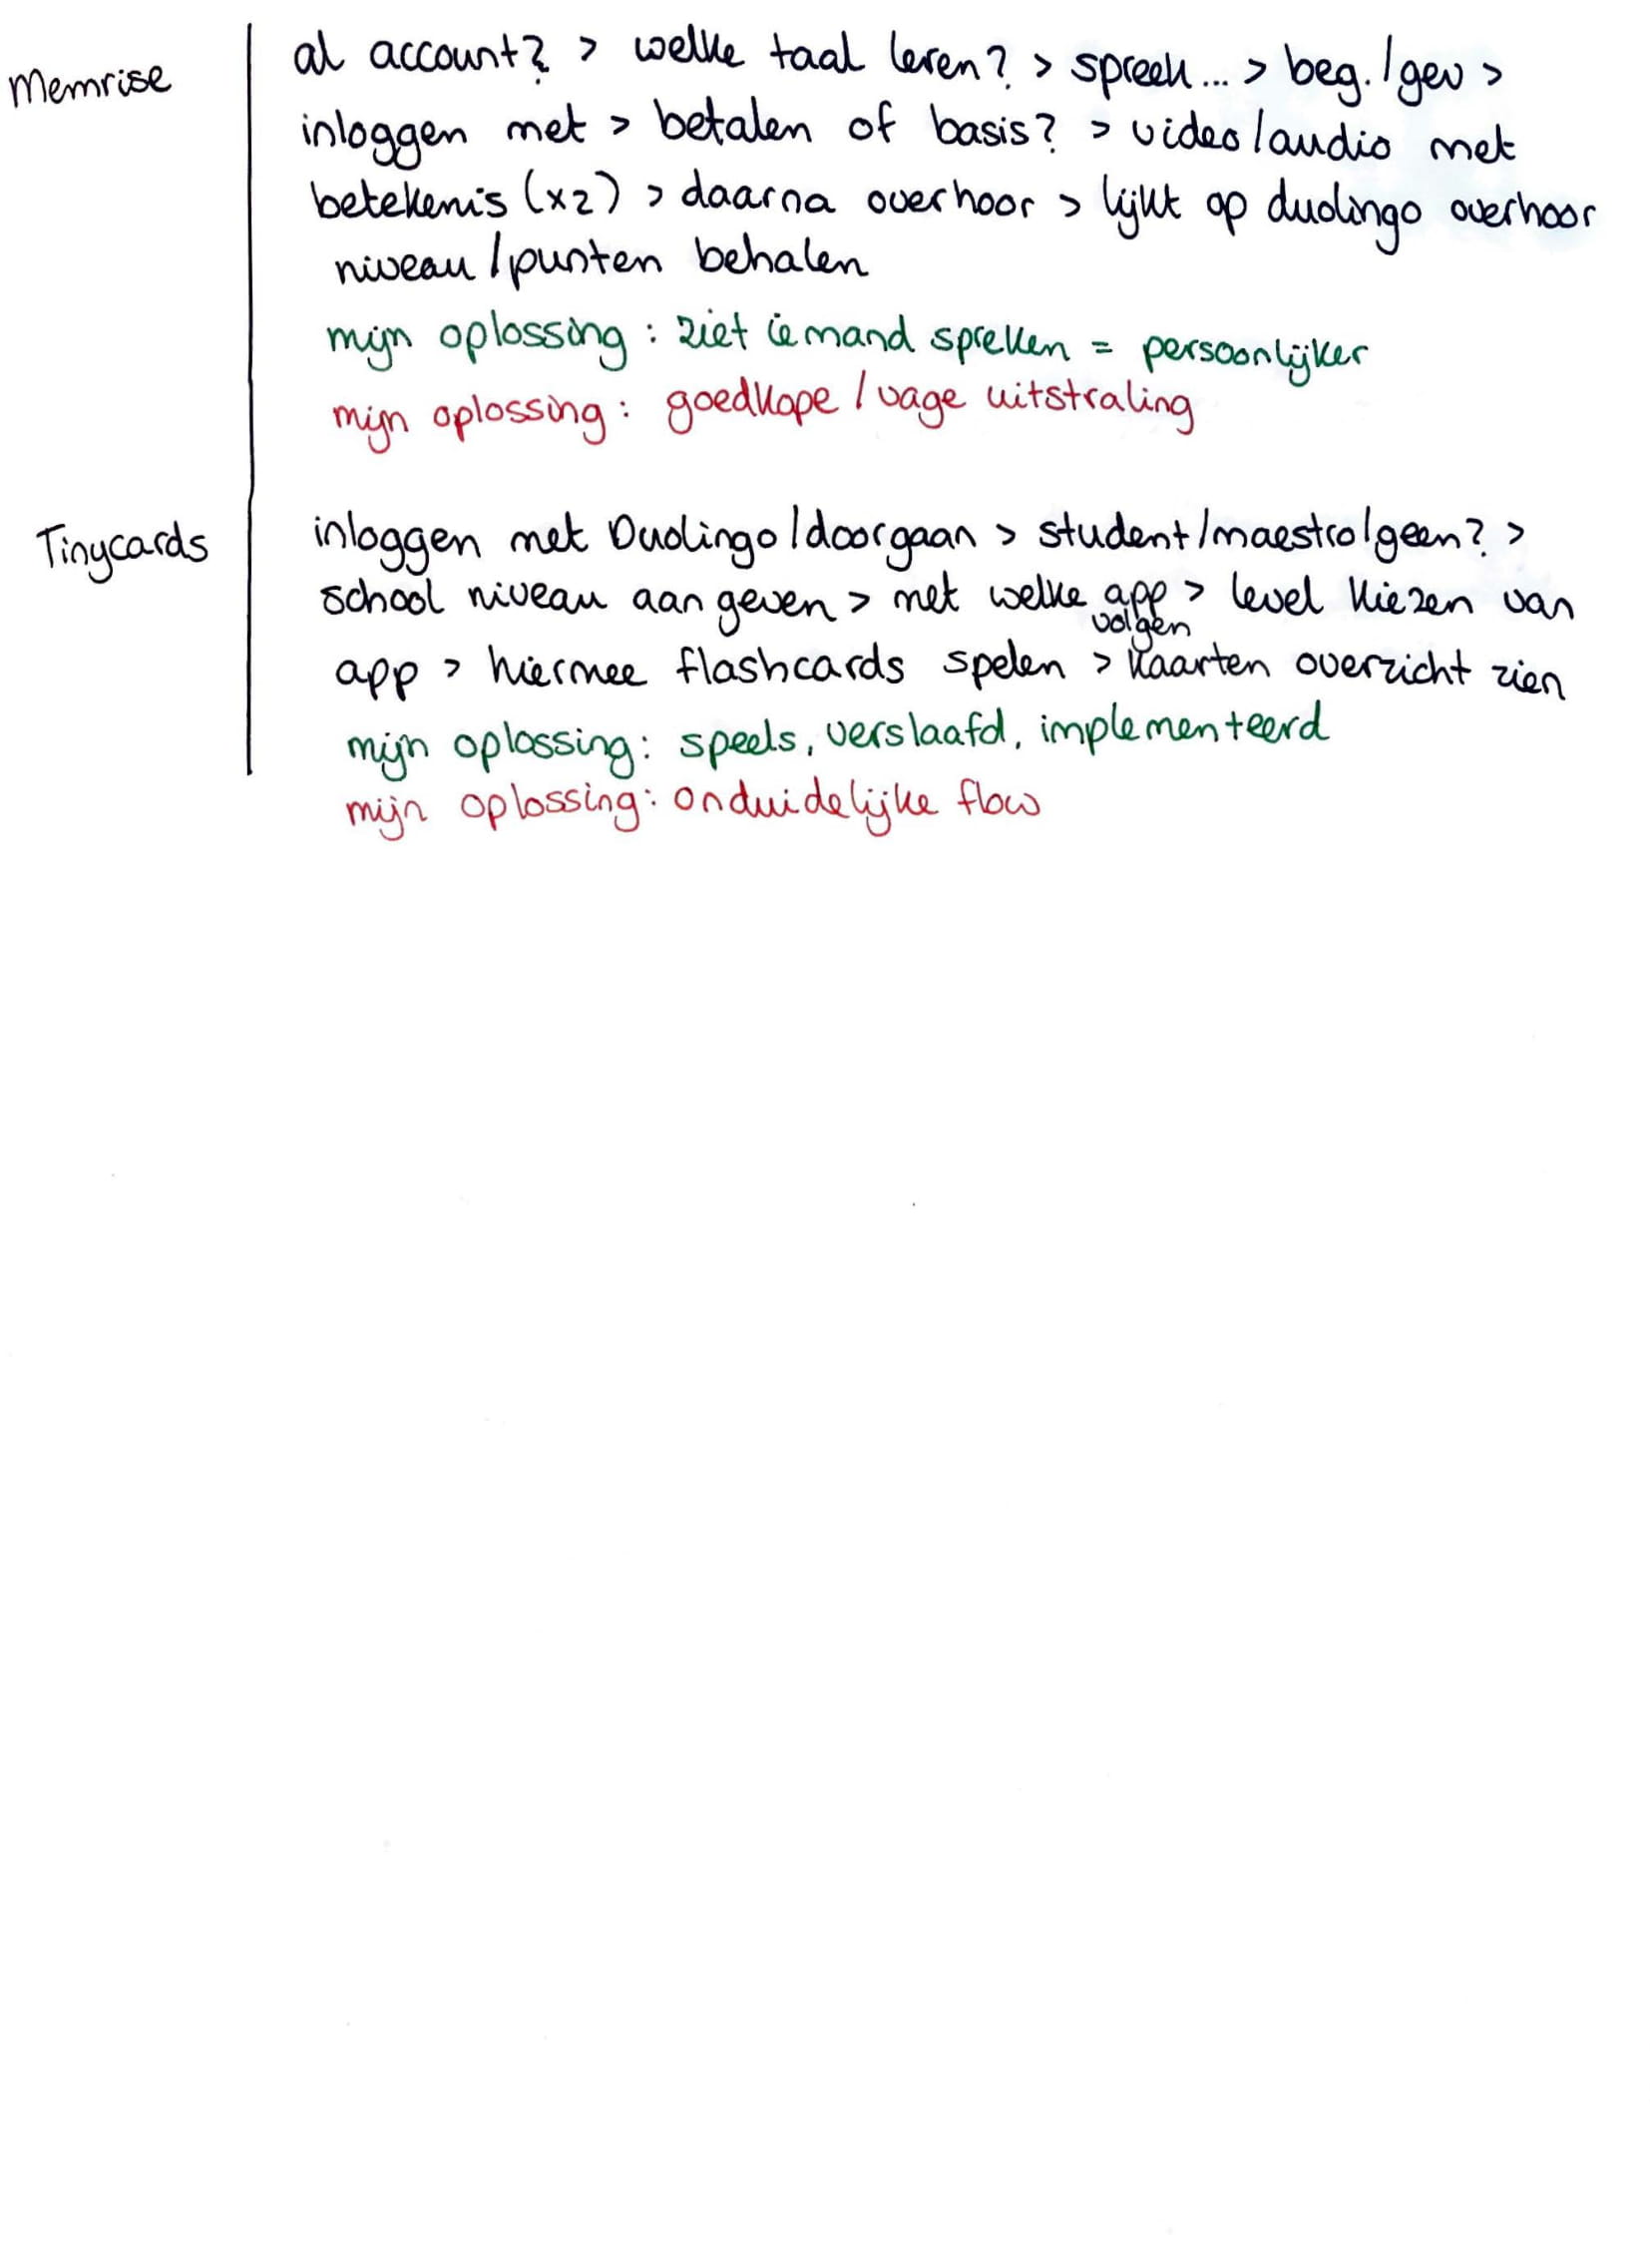 Memrise
al account? > welke taal leren? > spreek... > beg. / gev >
inloggen met > betalen of basis? > video/audio met
betekenis (x2) > daarna overhoor > lijkt op duolingo overhoor
niveau / punten behalen
mijn oplossing : ziet iemand spreken = persoonlijker
mijn oplossing : goedkope / vage uitstraling
Tinycards
inloggen met Duolingo/doorgaan > student/maestro/geen? >
school niveau aangeven > met welke app > level kiezen van
volgen
app > hiermee flashcards spelen > kaarten overzicht zien
mijn oplossing: speels, verslaafd, implementeerd
mijn oplossing: onduidelijke flow